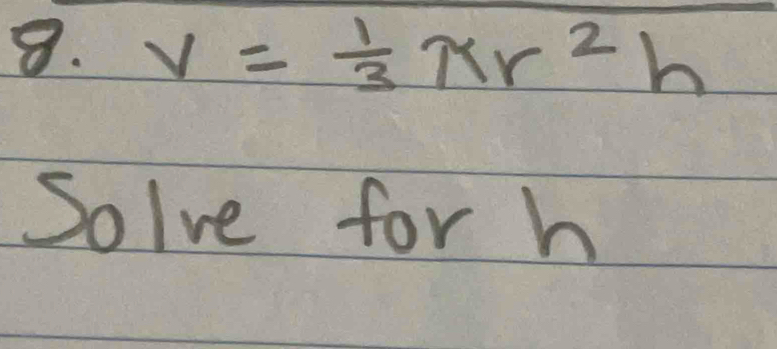 8. V = 1/3 πr² h
Solve for h